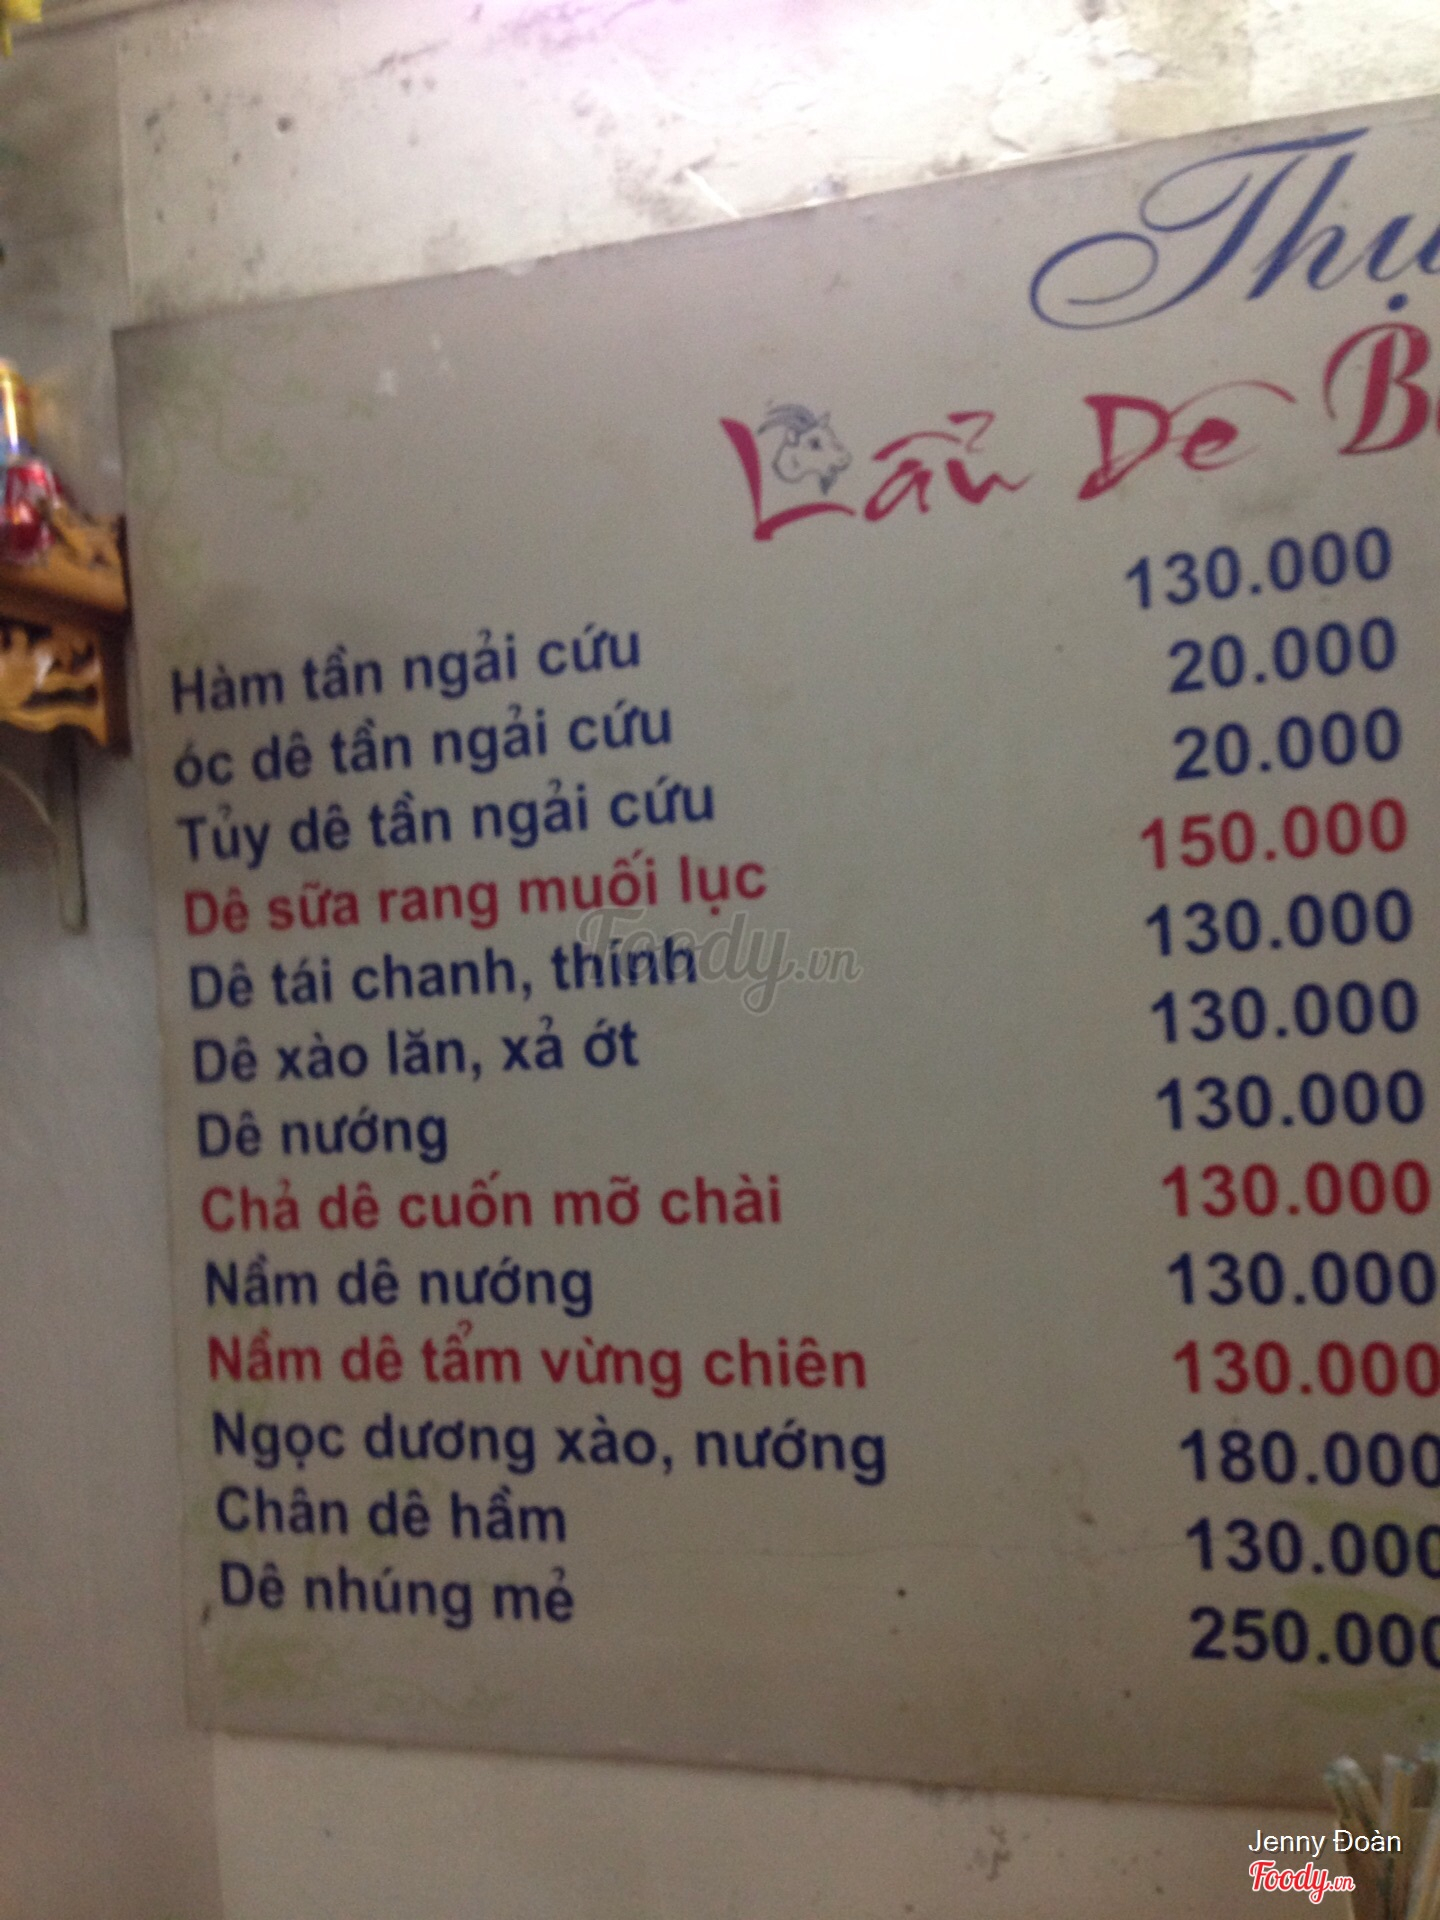 Lẩu Dê
Hàm tần ngải cứu 130.000
óc dê tần ngải cứu 20.000
Tủy dê tần ngải cứu 20.000
Dê sữa rang muối lục 150.000
Dê tái chanh, thính 130.000
Dê xào lăn, xả ớt 130.000
Dê nướng 130.000
Chả dê cuốn mỡ chài 130.000
Nầm dê nướng 130.000
Nầm dê tẩm vừng chiên 130.000
Ngọc dương xào, nướng 180.000
Chân dê hầm 130.000
Dê nhúng mẻ 250.000
Foody.vn
Jenny Đoàn
Foody.vn